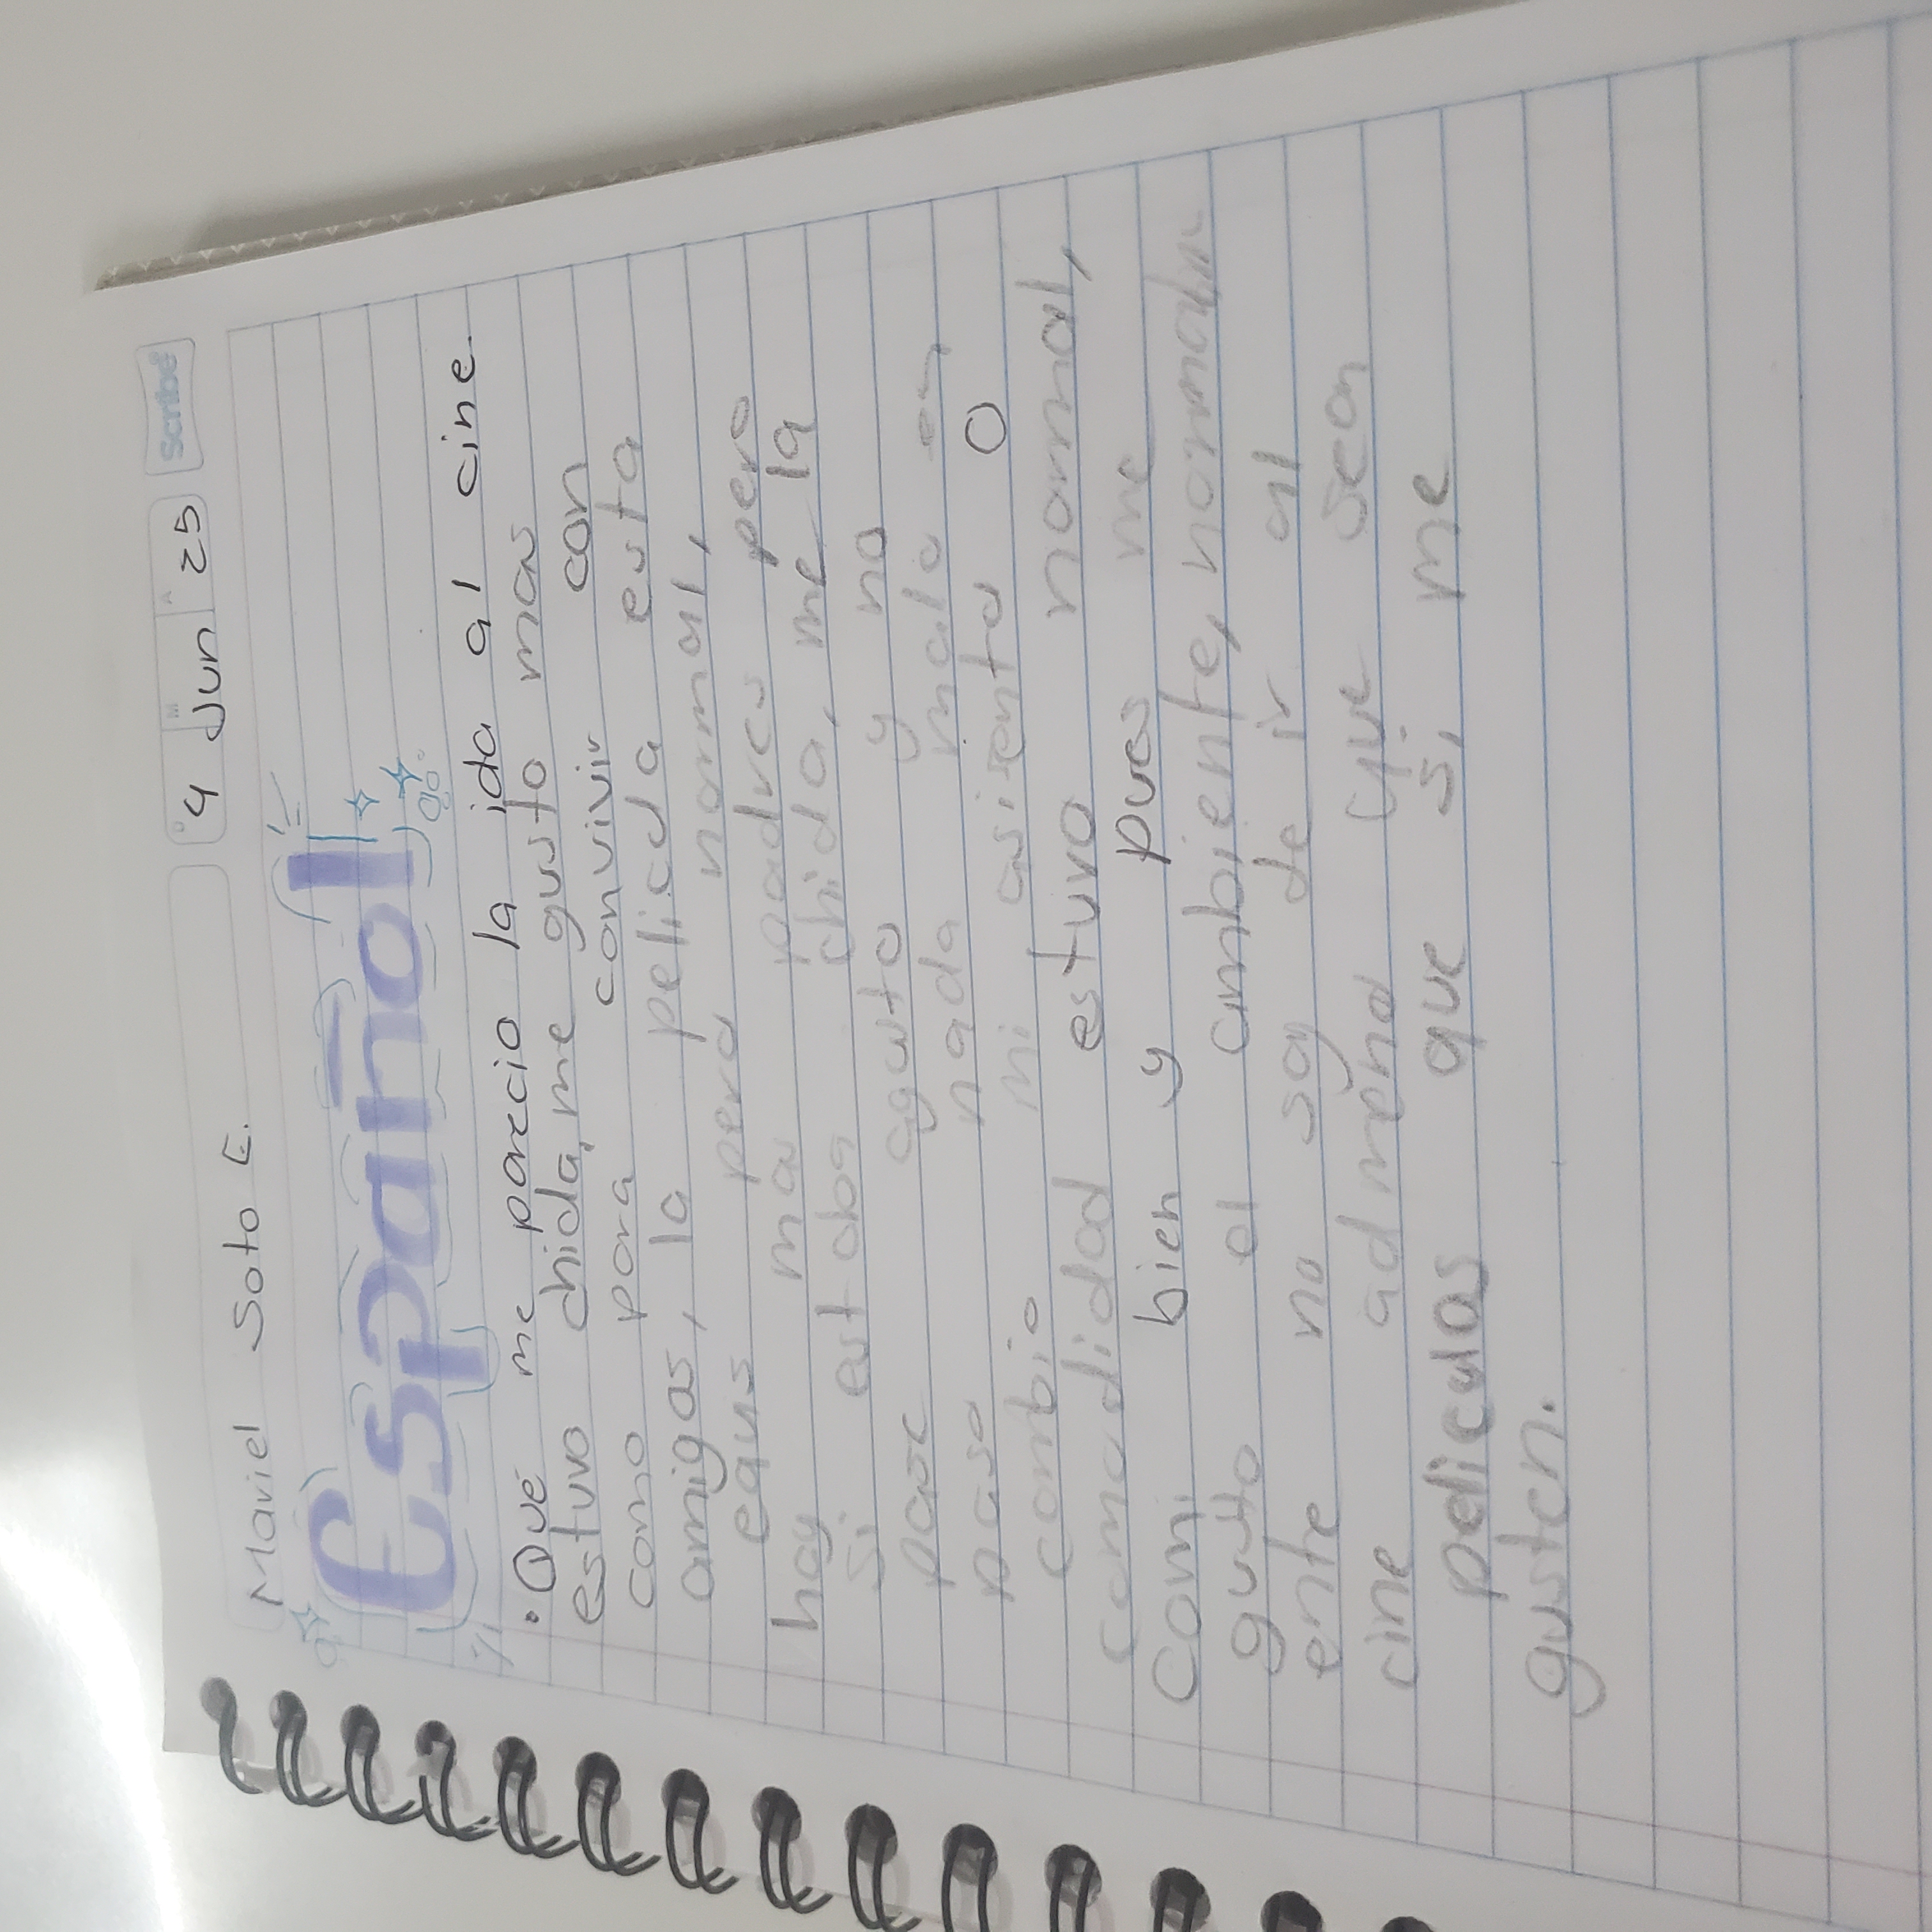 Mariel Soto E.
D M A
4 Jun 25
Scribe
Español
• Qué me parecio la ida al cine.
estuvo chida, me gusto mas
como para convivir con
amigos, la pelicula esta
equis pero normal,
hay mas padres pero
si estaba chida, me la
pase agusto y no
paso nada malo en
cambio mi asiento O
comodidad estuvo normal,
comi bien y pues me
gusto el ambiente, normalm
ente no soy de ir al
cine ad menos que sean
peliculas que si me
gusten.